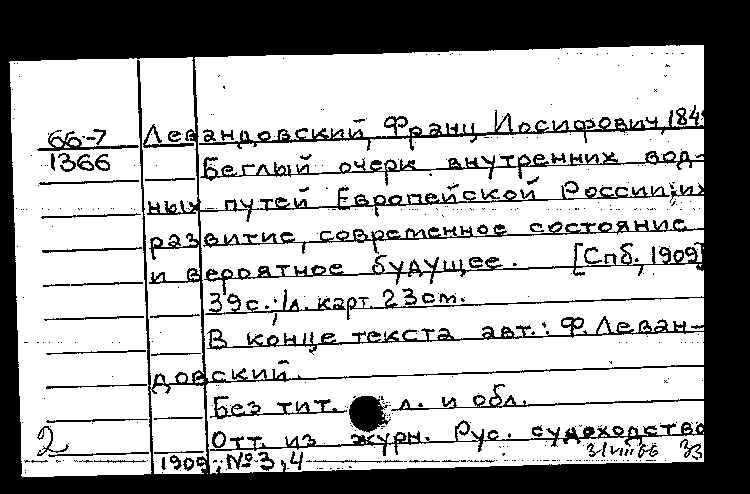 66-7 Левандовский, Франц Иосифович, 184
1366 Беглый очерк внутренних вод-
ных путей Европейской России; их
развитие, современное состояние
и вероятное будущее. [Спб., 1909]
39с.; 1л. карт. 23см.
В конце текста авт.: Ф. Леван-
довский.
Без тит. л. и обл.
2 Отт. из журн. Рус. судоходство
1909, №3, 4 31 VIII 66 33